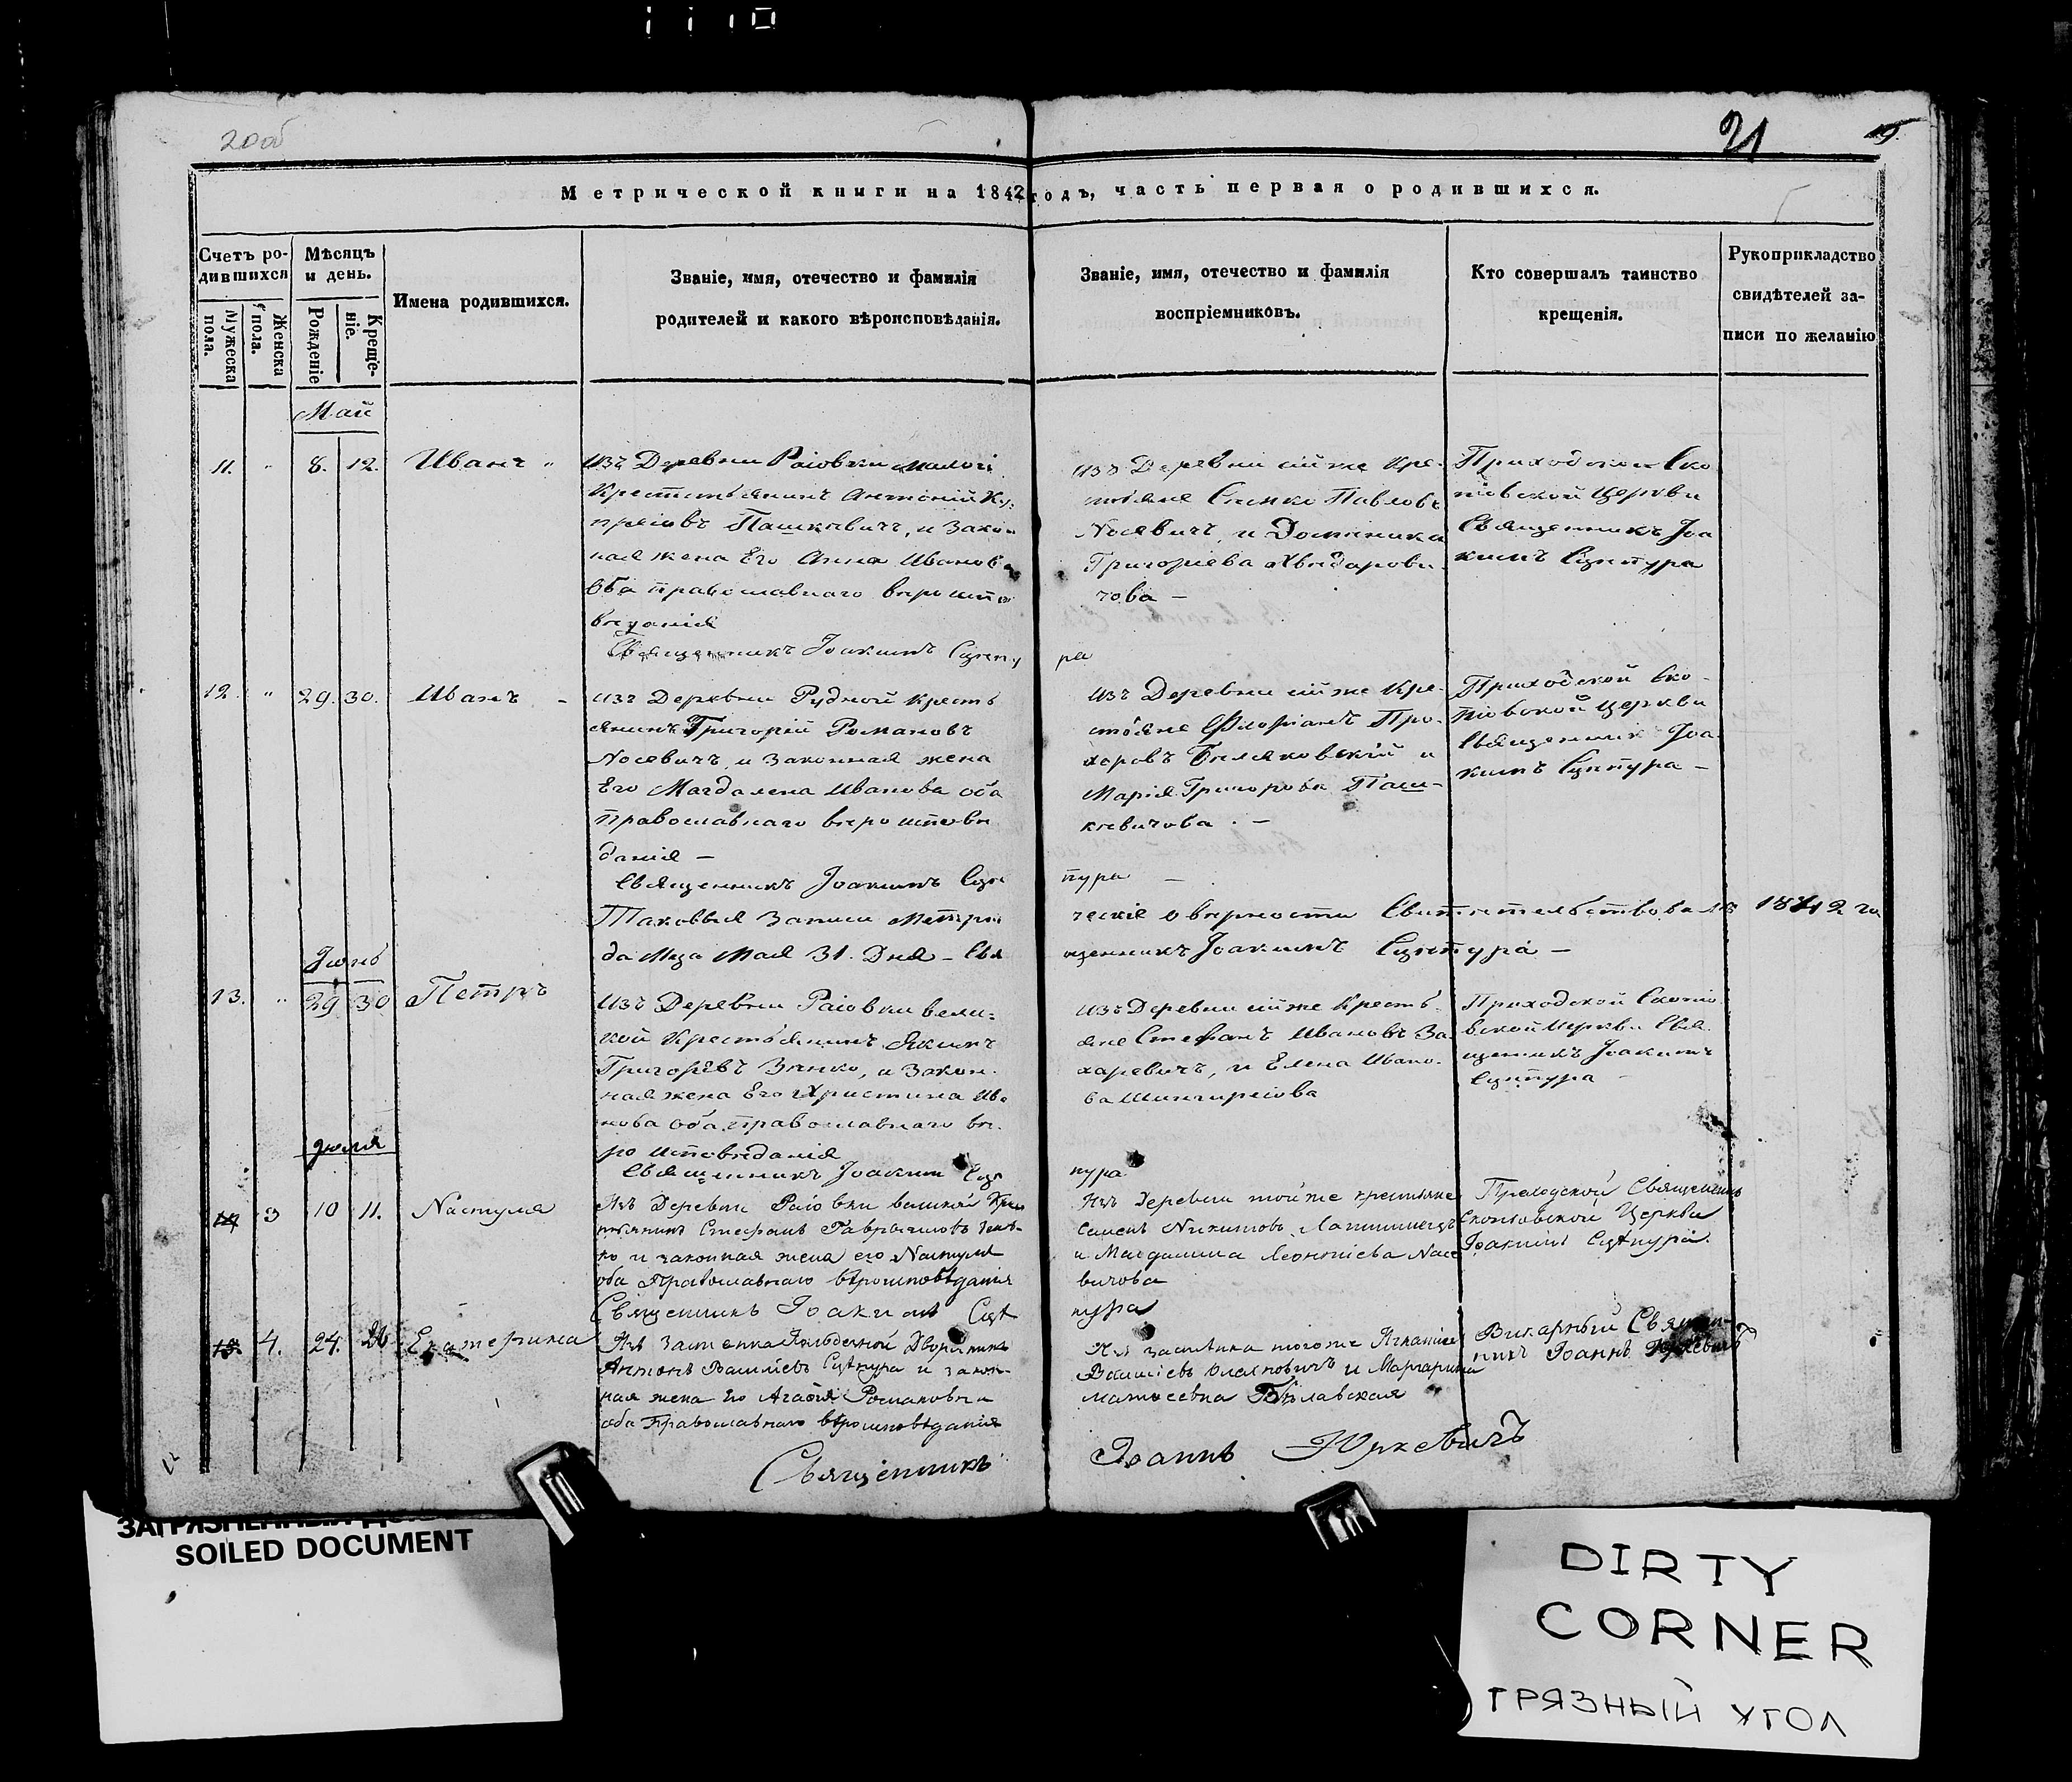 20об
21
19.
Метрической книги на 1842 годъ, часть первая о родившихся.
Счетъ ро-
дившихся
Мужеска
пола.
Женска
пола.
Мѣсяцъ
и день.
Рожденіе
Креще-
ніе.
Имена родившихся.
Званіе, имя, отечество и фамилія
родителей и какого вѣроисповѣданія.
Званіе, имя, отечество и фамилія
воспріемниковъ.
Кто совершалъ таинство
крещенія.
Рукоприкладство
свидѣтелей за-
писи по желанію
Май
11. " 8. 12. Иванъ "
Изъ Деревни Раiовки Малой
Крестьянинъ Антоній Ку-
прiовъ Пашкѣвичъ, и Закон
ная жена Его Анна Иванова
Оба православнаго вѣроиспо
вѣданія
Священникъ Іоакимъ Сцепу
ра
Изъ Деревни сій же Кре-
стьяне Симко Павловъ
Nосевичъ, и Доминика
Григоріева
чова —
Приходской Ско
пiовской Церкви
Священникъ Іоа
кимъ Сцепура
12. " 29. 30. Иванъ —
Изъ Деревни Рудной Кресть
янинъ Григорій Романовъ
Nосевичъ, и Законная жена
Его Магдалена Иванова оба
православнаго вѣроисповѣ
данія —
Священникъ Іоакимъ Сцѣ
пура —
Изъ Деревни сій же Кре-
стьяне Флоріанъ Про-
харовъ Билековскій и
Марія Григорова Паш-
кѣвичова . —
Приходской Ско-
пiовской Церкви
Священникъ Іоа
кимъ Сцѣпура —
Таковыя Записи Метри ческіе о вѣрности Свитѣтельствовалъ 1842 го
да Мца Мая 31. Дня — Свя щенникъ Іоакимъ Сцѣпура —
Іюнь
13. " 29 30 Петръ
Изъ Деревни Раiовки вели-
кой Крестьянинъ Якимъ
Григорѣвъ Зѣнко, и Закон-
ная жена Его Христина Ива
нова оба православнаго вѣ-
ро исповѣданія
Священникъ Іоаким Сцѣ
пура
Изъ Деревни сій же Кресть
яне Стефанъ Ивановъ За
харевичъ, и Елена Ивано-
ва
Приходской Скопiо
вской Церкви Свя
щенникъ Іоакимъ
Сцѣпура —
Іюля
14 3 10 11. Nастуля
Изъ Деревни Раіовки великой Крес
тьянинъ Стефанъ Гаврыловъ Зѣнь-
ко и законная жена его Nастуля
оба Православнаго вѣроисповѣданія
Священникъ Іоакимъ Сцѣ
пура
Изъ Деревни той же крестьяне
Семенъ Nикитовъ
и Магдалина Леонтіева Nосе
вичова
Приходской Священникъ
Скопіовской Церкви
Іоакимъ Сцѣпура.
15. 4. 24. 26 Екатерина
Изъ Застенка Дворянинъ
Антонъ Василіевъ Сцѣпура и закон-
ная жена Его Агафія Романовна
оба Православнаго вѣроисповѣданія
Изъ застѣнка тогоже Игнатій
Василіевъ и Маргарита
Матвеевна Бѣлавская
Викарный Священ-
никъ Іоаннъ Юркевичъ
Священникъ Іоаннъ Юркевичъ
SOILED DOCUMENT
DIRTY
CORNER
ГРЯЗНЫЙ УГОЛ